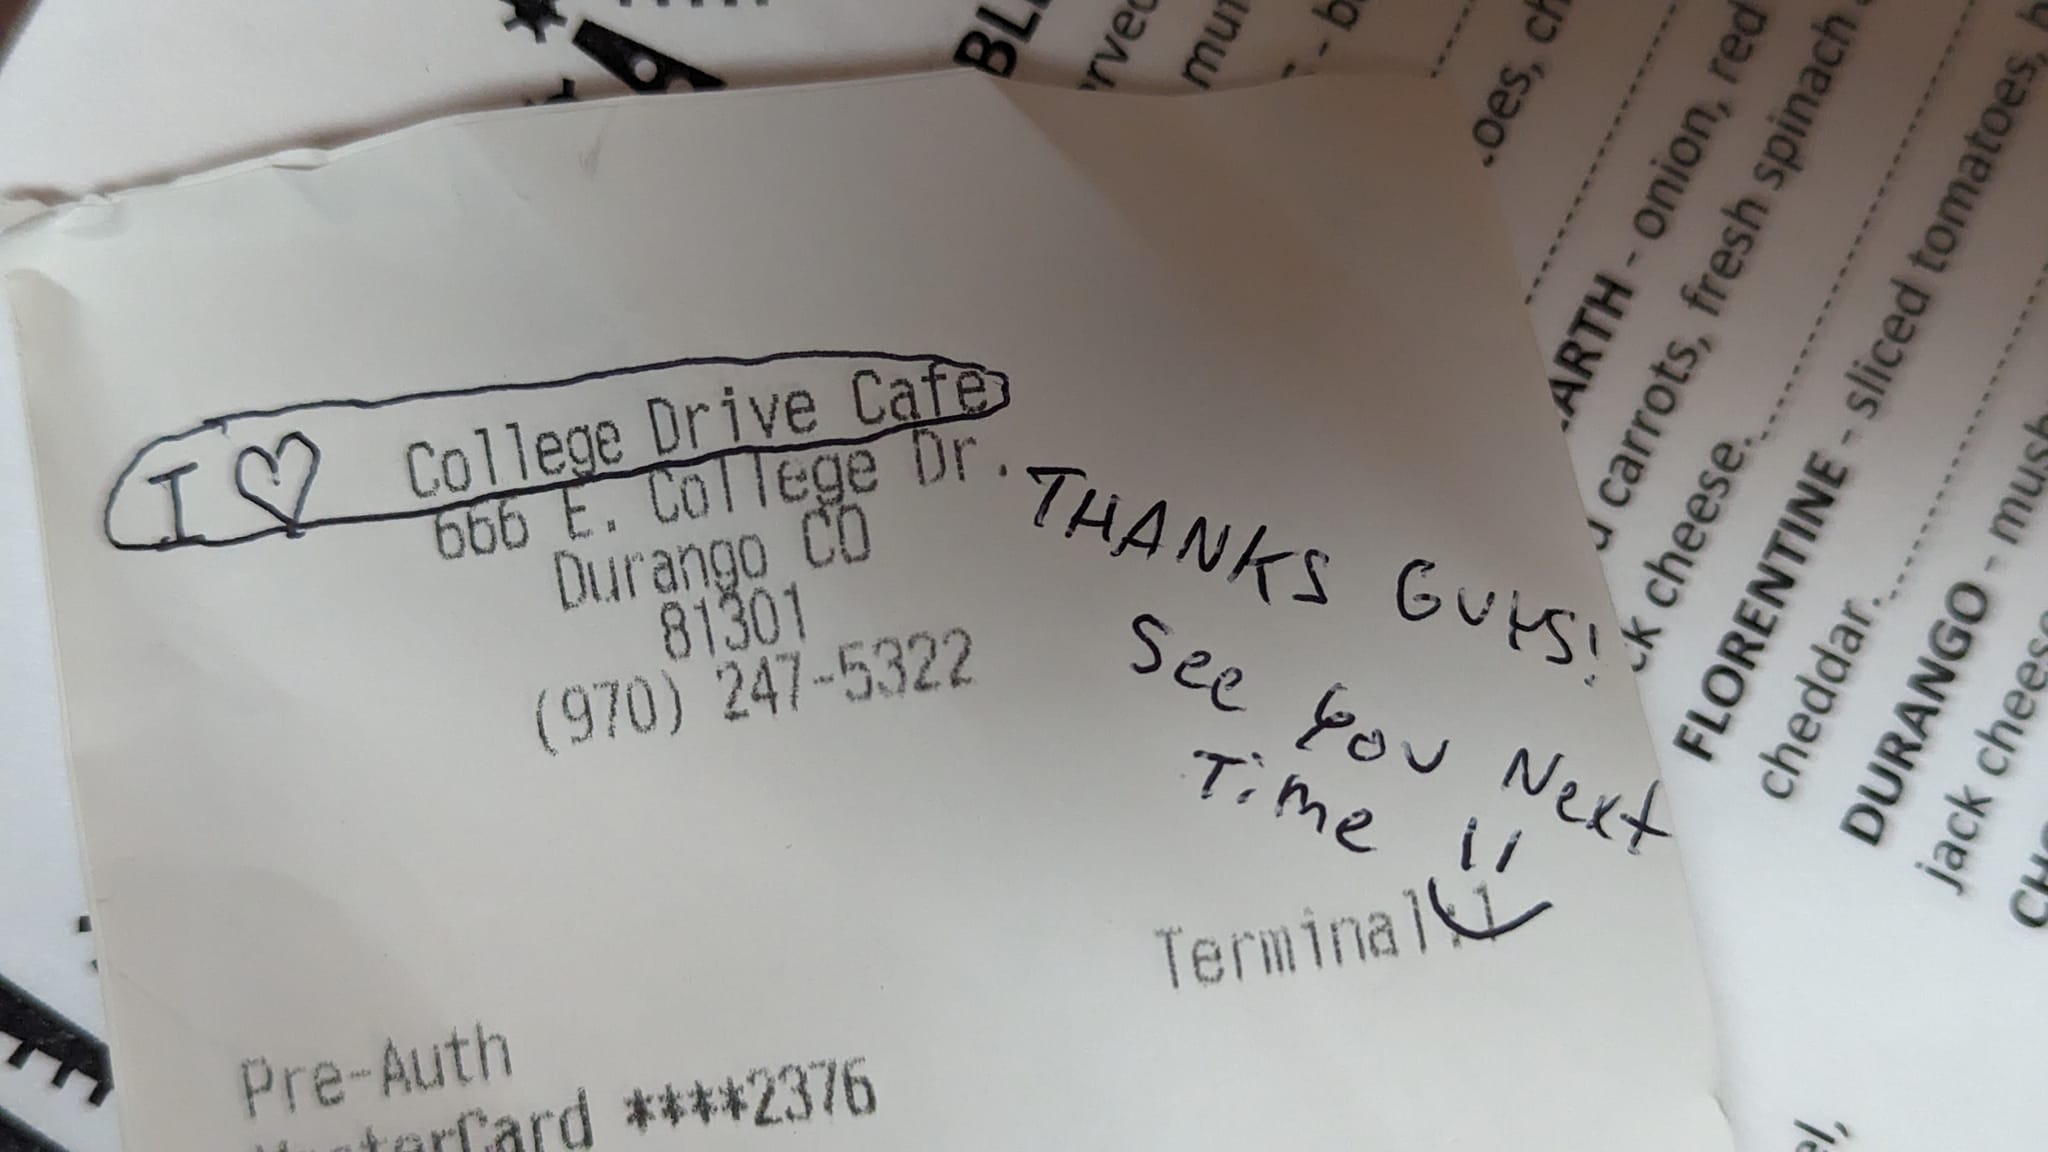 I ♡ College Drive Cafe
666 E. College Dr.
Durango CO
81301
(970) 247-5322
THANKS GUYS!
See You Next
Time !!
Terminal:1
Pre-Auth
MasterCard ****2376
oes, ch
ARTH - onion, red
carrots, fresh spinach
ck cheese.
FLORENTINE - sliced tomatoes,
cheddar.
DURANGO - mush
jack cheese